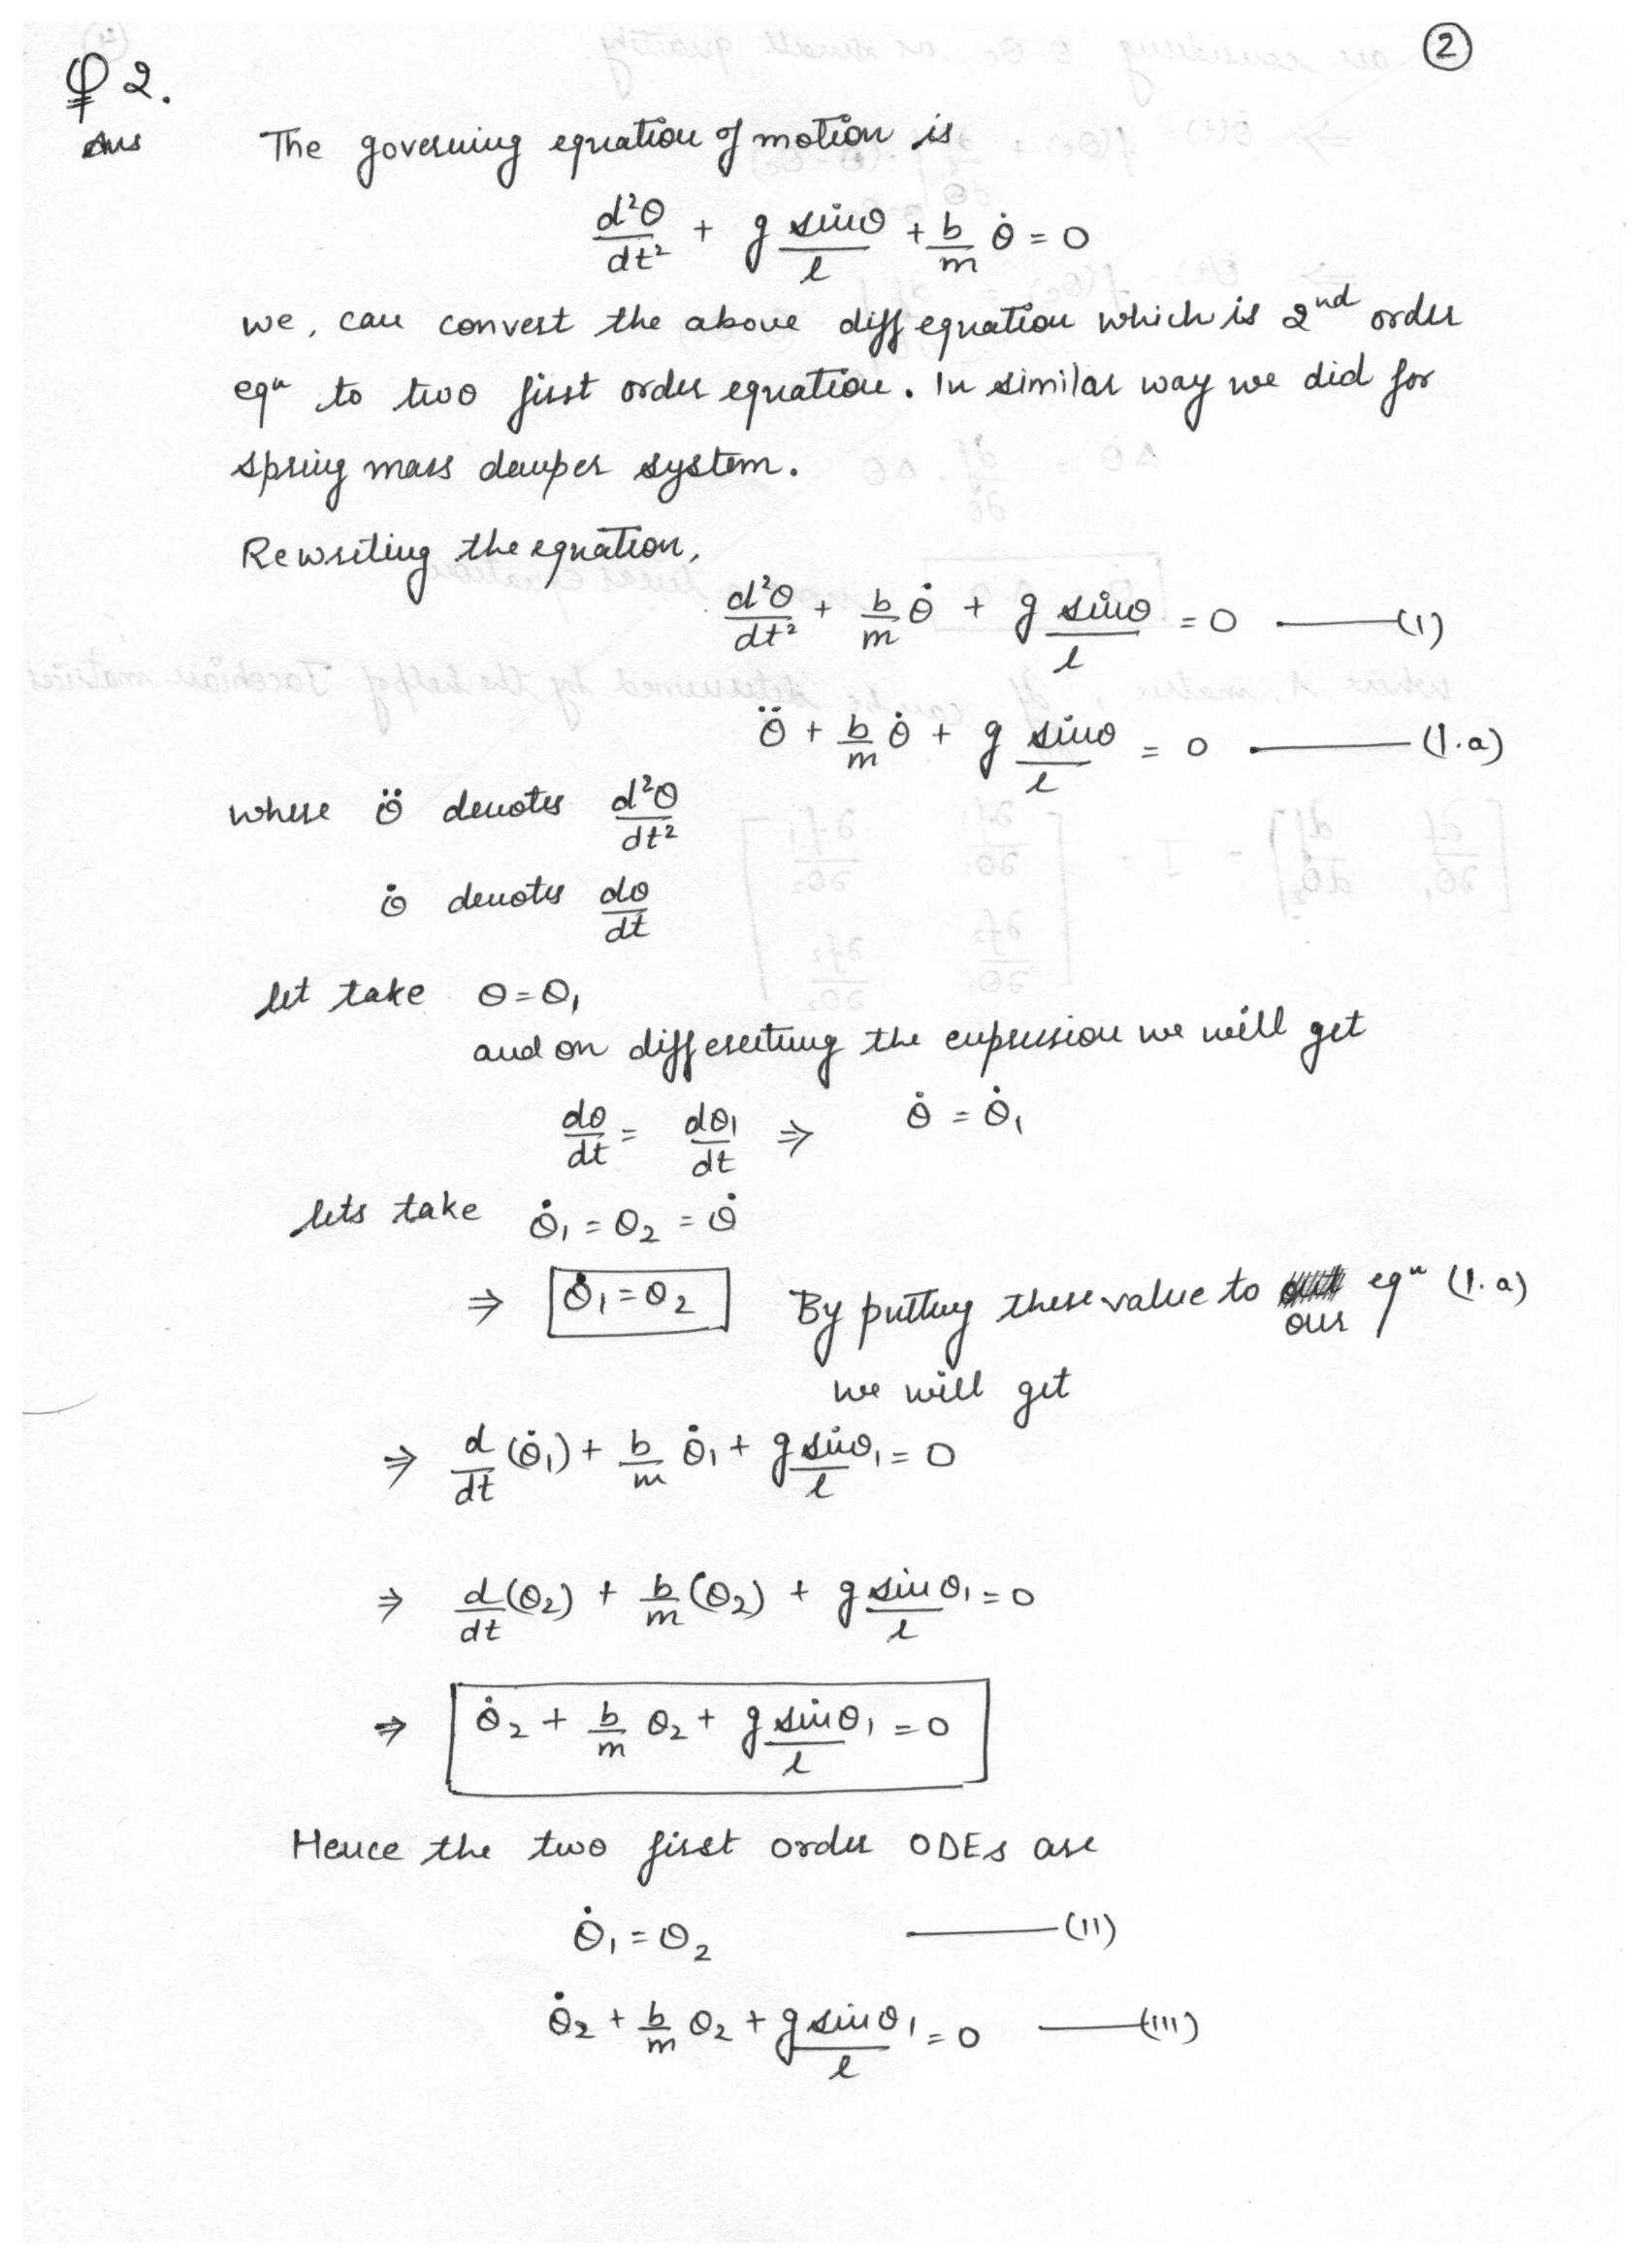 ②
Q 2.
Ans The governing equation of motion is
d²θ/dt² + g sinθ/l + b/m θ̇ = 0
we, can convert the above diff equation which is 2nd order
eqn to two first order equation. In similar way we did for
spring mass damper system.
Rewriting the equation,
d²θ/dt² + b/m θ̇ + g sinθ/l = 0 ——(1)
θ̈ + b/m θ̇ + g sinθ/l = 0 ——(1.a)
where θ̈ denotes d²θ/dt²
θ̇ denotes dθ/dt
let take θ = θ₁
and on differeting the expression we will get
dθ/dt = dθ₁/dt ⇒ θ̇ = θ̇₁
lets take θ̇₁ = θ₂ = θ̇
⇒ θ̇₁ = θ₂ By putting these value to our eqn (1.a)
we will get
⇒ d/dt (θ̇₁) + b/m θ̇₁ + g sinθ₁/l = 0
⇒ d/dt (θ₂) + b/m (θ₂) + g sinθ₁/l = 0
⇒ θ̇₂ + b/m θ₂ + g sinθ₁/l = 0
Hence the two first order ODEs are
θ̇₁ = θ₂ ——(11)
θ̇₂ + b/m θ₂ + g sinθ₁/l = 0 ——(111)